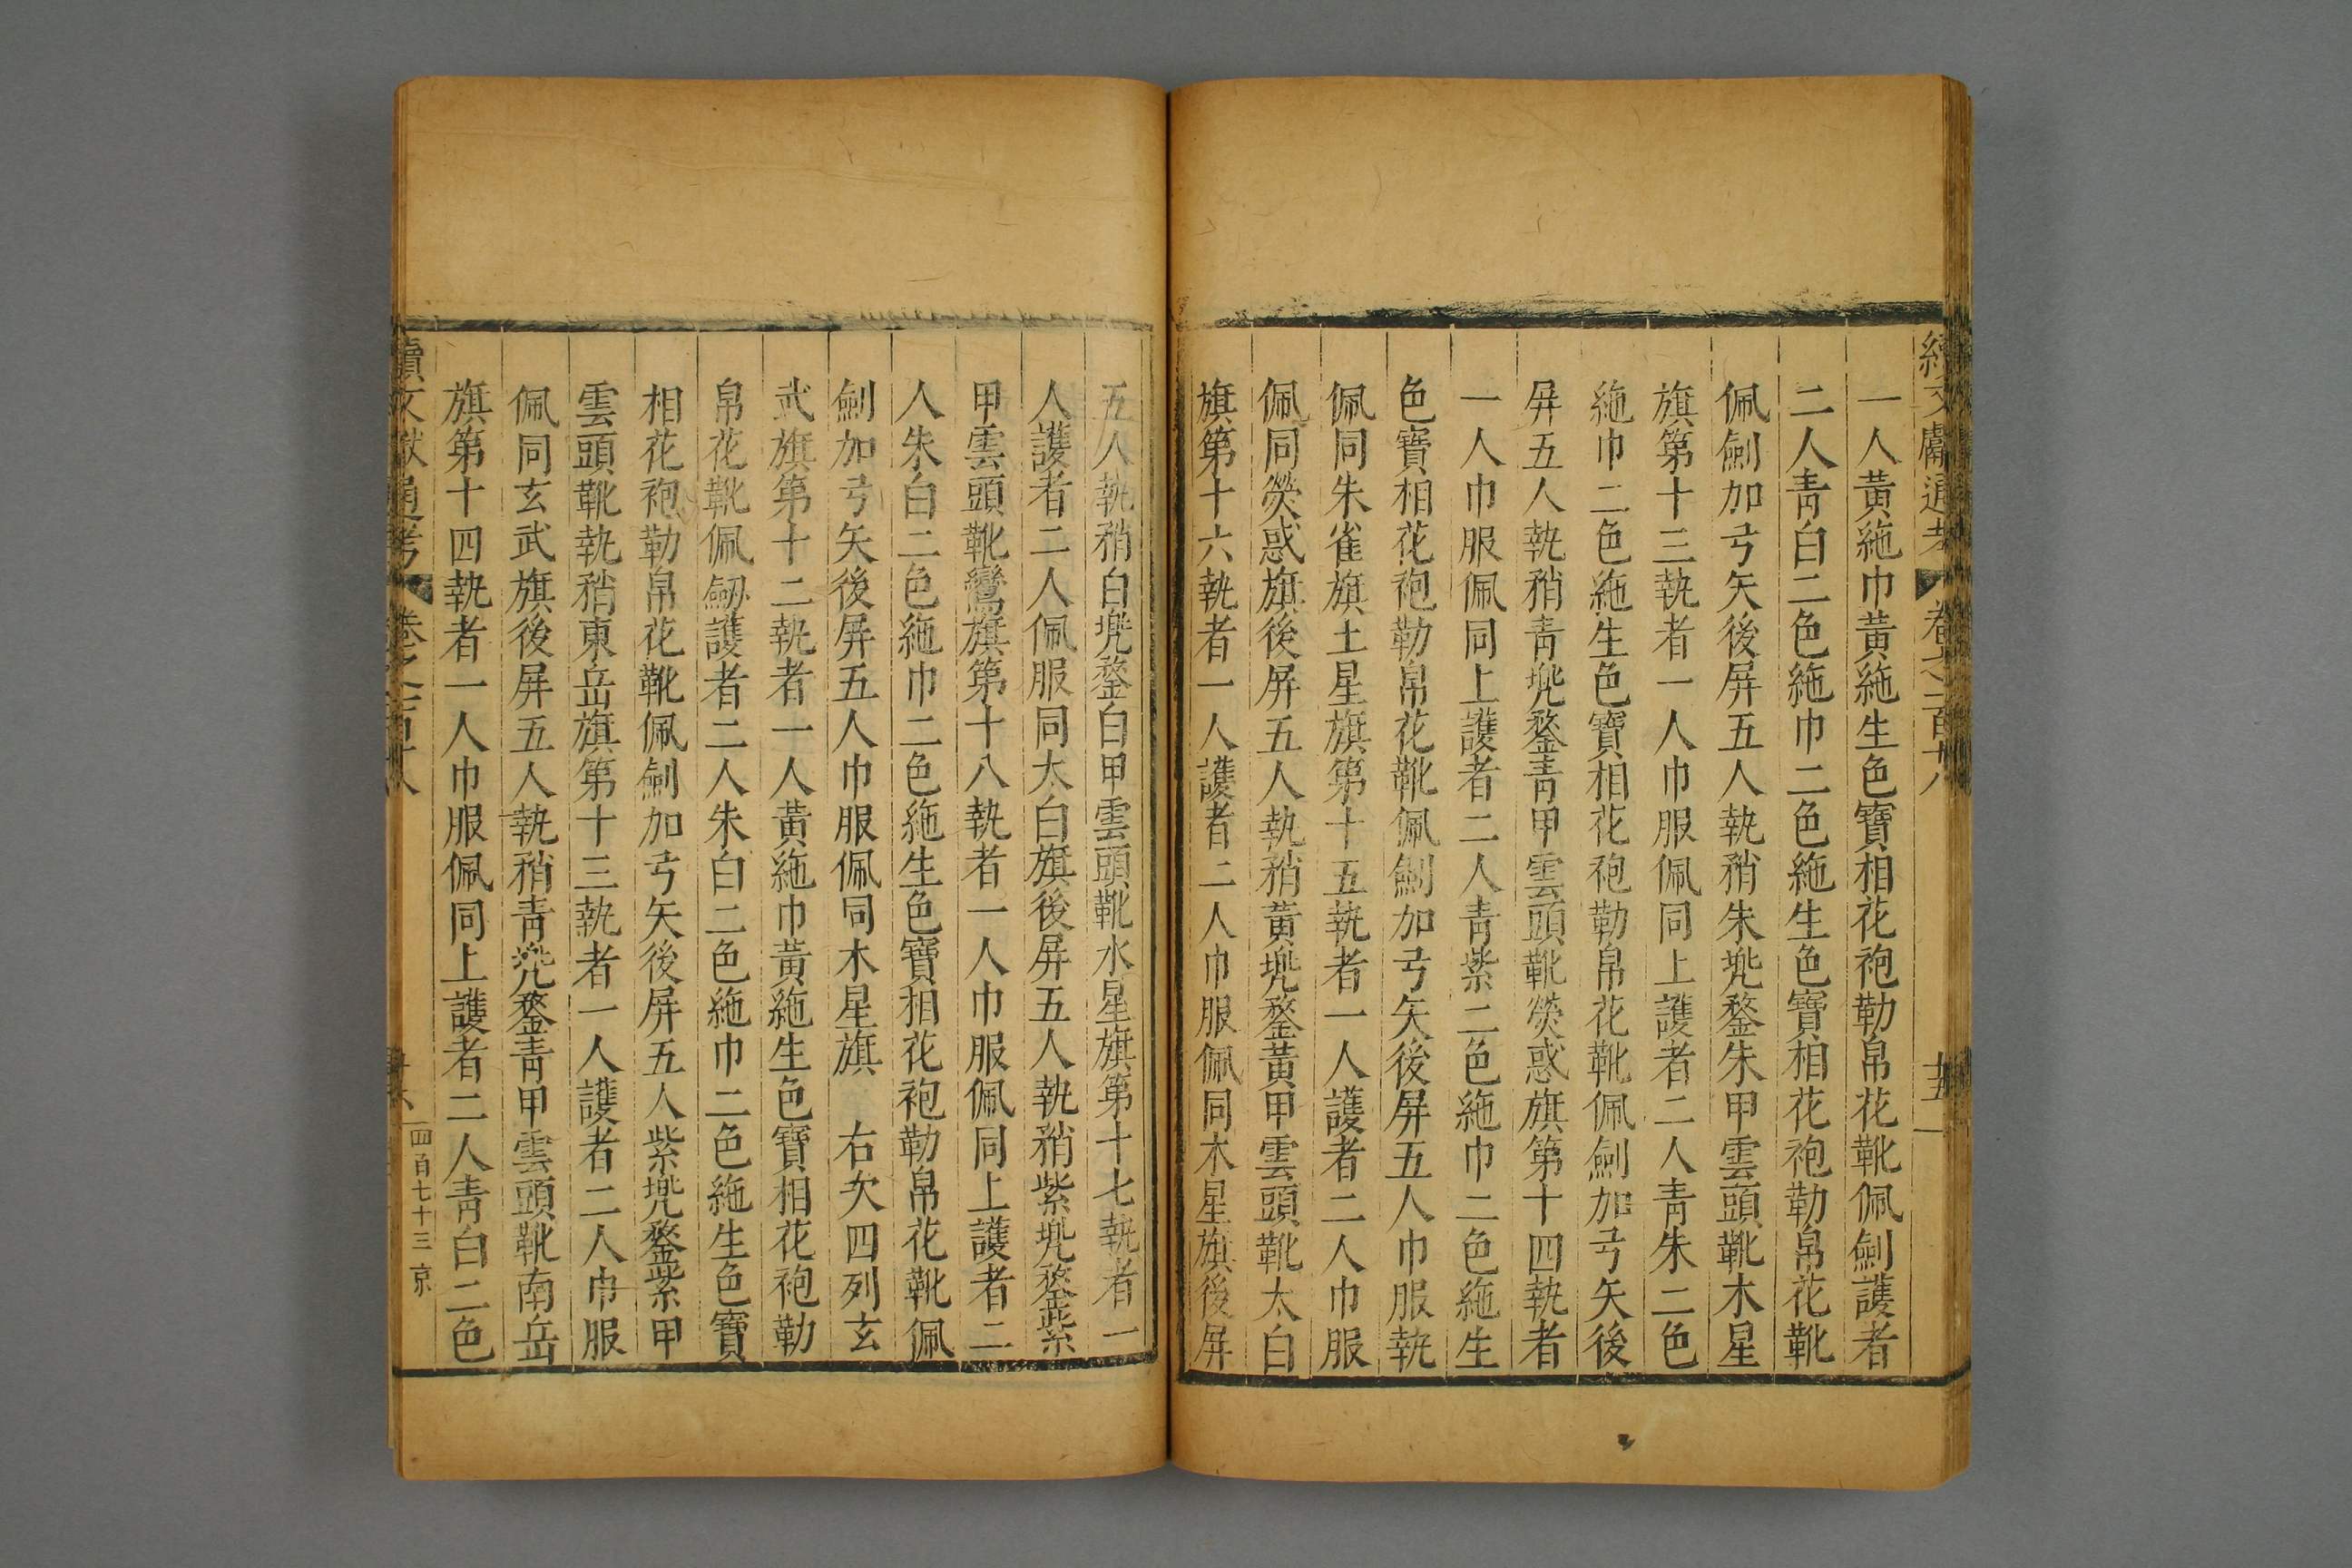 一人黃絁巾黃絁生色寶相花袍勒帛花靴佩劍護者
二人青白二色絁巾二色絁生色寶相花袍勒帛花靴
佩劍加弓矢後屏五人執矟朱兠鍪朱甲雲頭靴木星
旗第十三執者一人巾服佩同上護者二人青朱二色
絁巾二色絁生色寶相花袍勒帛花靴佩劍加弓矢後
屏五人執矟青兠鍪青甲雲頭靴熒惑旗第十四執者
一人巾服佩同上護者二人青紫二色絁巾二色絁生
色寶相花袍勒帛花靴佩劍加弓矢後屏五人巾服執
佩同朱雀旗土星旗第十五執者一人護者二人巾服
佩同熒惑旗後屏五人執矟黃兠鍪黃甲雲頭靴太白
旗第十六執者一人護者二人巾服佩同木星旗後屏
五人執矟白兠鍪白甲雲頭靴水星旗第十七執者一
人護者二人佩服同太白旗後屏五人執矟紫兠鍪紫
甲雲頭靴鸞旗第十八執者一人巾服佩同上護者二
人朱白二色絁巾二色絁生色寶相花袍勒帛花靴佩
劍加弓矢後屏五人巾服佩同木星旗 右次四列玄
武旗第十二執者一人黃絁巾黃絁生色寶相花袍勒
帛花靴佩劒護者二人朱白二色絁巾二色絁生色寶
相花袍勒帛花靴佩劍加弓矢後屏五人紫兠鍪紫甲
雲頭靴執矟東岳旗第十三執者一人護者二人巾服
佩同玄武旗後屏五人執矟青兠鍪青甲雲頭靴南岳
旗第十四執者一人巾服佩同上護者二人青白二色
續文獻通考 卷之一百十八
四百七十三 京